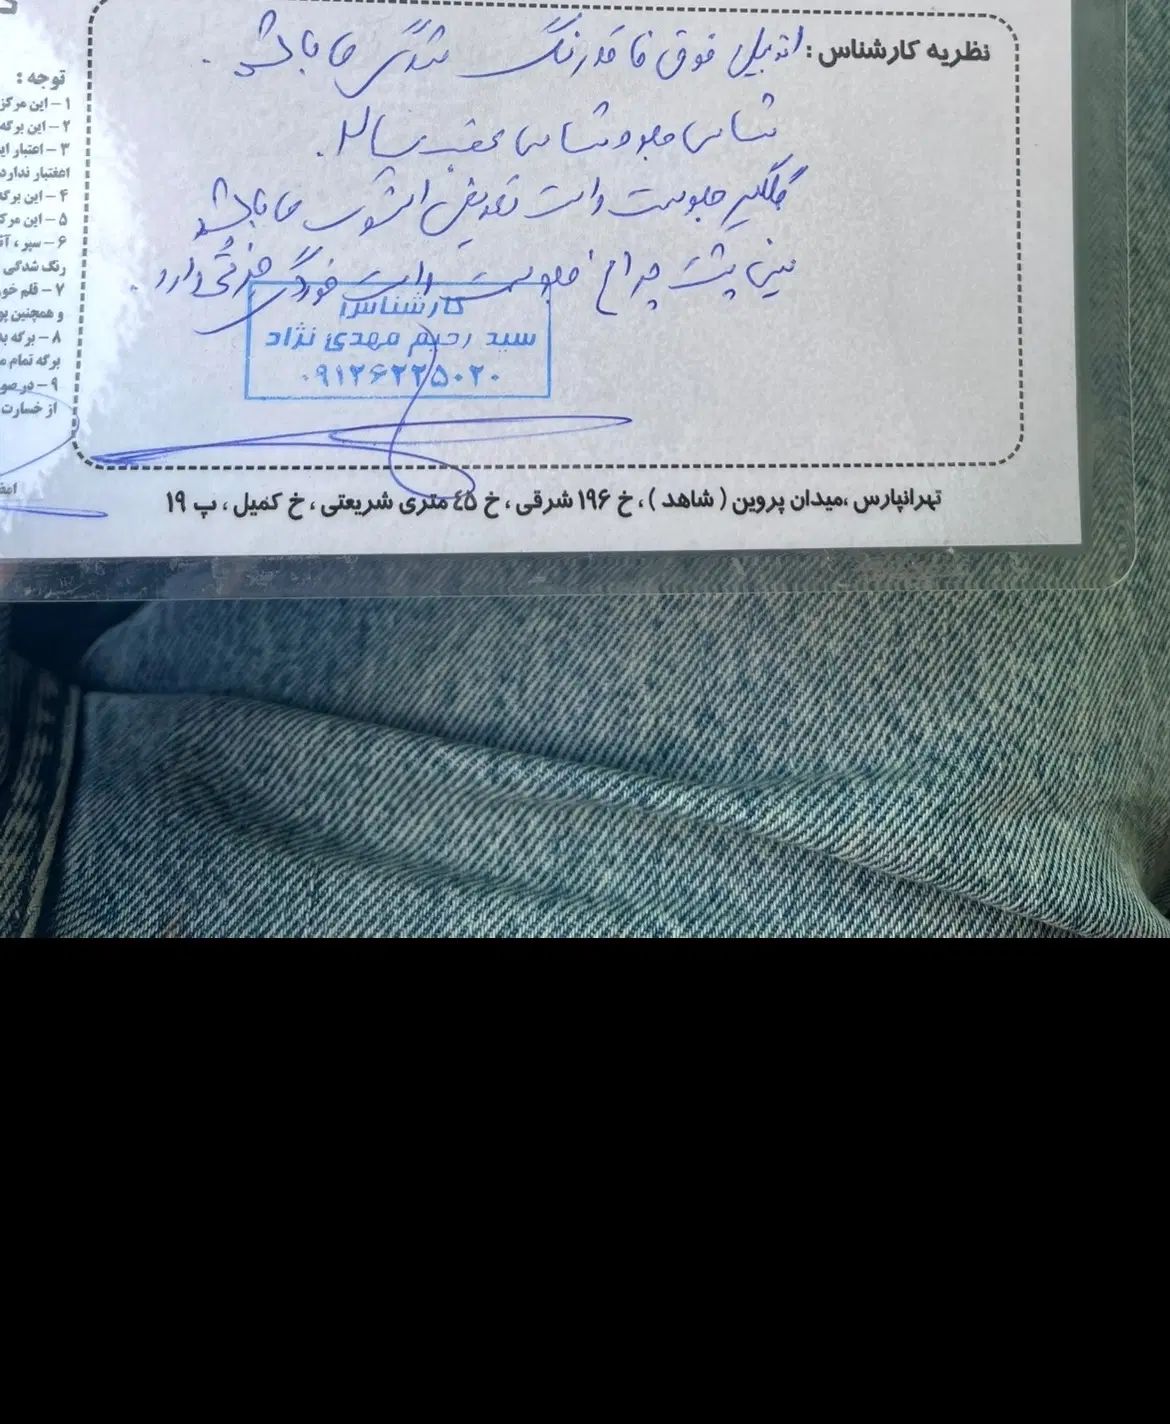 نظریه کارشناس: اتومبیل فوق فاقد رنگ شدگی می باشد.
شاسی جلو و شاسی عقب سالم.
گلگیر جلو سمت راست تعویض می باشد
سینی پشت چراغ جلو سمت راست خوردگی جزئی دارد.
کارشناس:
سید رحیم مهدی نژاد
۰۹۱۲۶۲۲۵۰۲۰
تهرانپارس ،میدان پروین ( شاهد ) ، خ ۱۹۶ شرقی ، خ ٤٥ متری شریعتی ، خ کمیل ، پ ۱۹
توجه :
۱ – این مرکز
۲ – این برگه
۳ – اعتبار
اعتبار ندارد
۴ – این برگه
۵ – این
۶ – سپر ،
رنگ شدگی
۷ – قلم
و همچنین
۸ – برگه
برگه تمام
۹ –
از خسارت